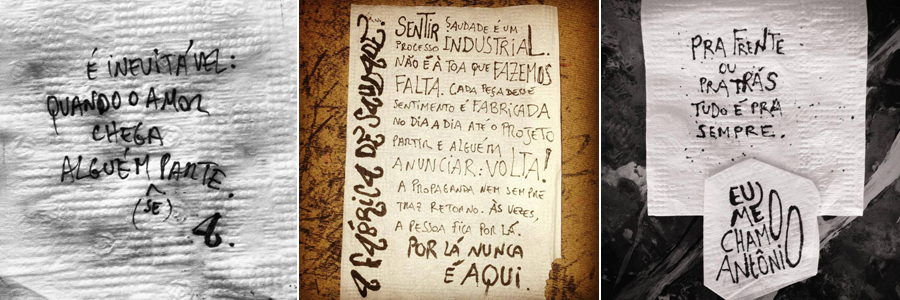 É INEVITÁVEL:
QUANDO O AMOR
CHEGA
ALGUÉM PARTE.
^
(SE)
A.
A FÁBRICA DE SAUDADE.
SENTIR SAUDADE É UM
PROCESSO INDUSTRIAL.
NÃO É À TOA QUE FAZEMOS
FALTA. CADA PEÇA DESSE
SENTIMENTO É FABRICADA
NO DIA A DIA ATÉ O PROJETO
PARTIR E ALGUÉM
ANUNCIAR: VOLTA!
A PROPAGANDA NEM SEMPRE
TRAZ RETORNO. ÀS VEZES,
A PESSOA FICA POR LÁ.
POR LÁ NUNCA
É AQUI.
PRA FRENTE
OU
PRA TRÁS
TUDO É PRA
SEMPRE.
EU
ME
CHAMO
ANTÔNIO